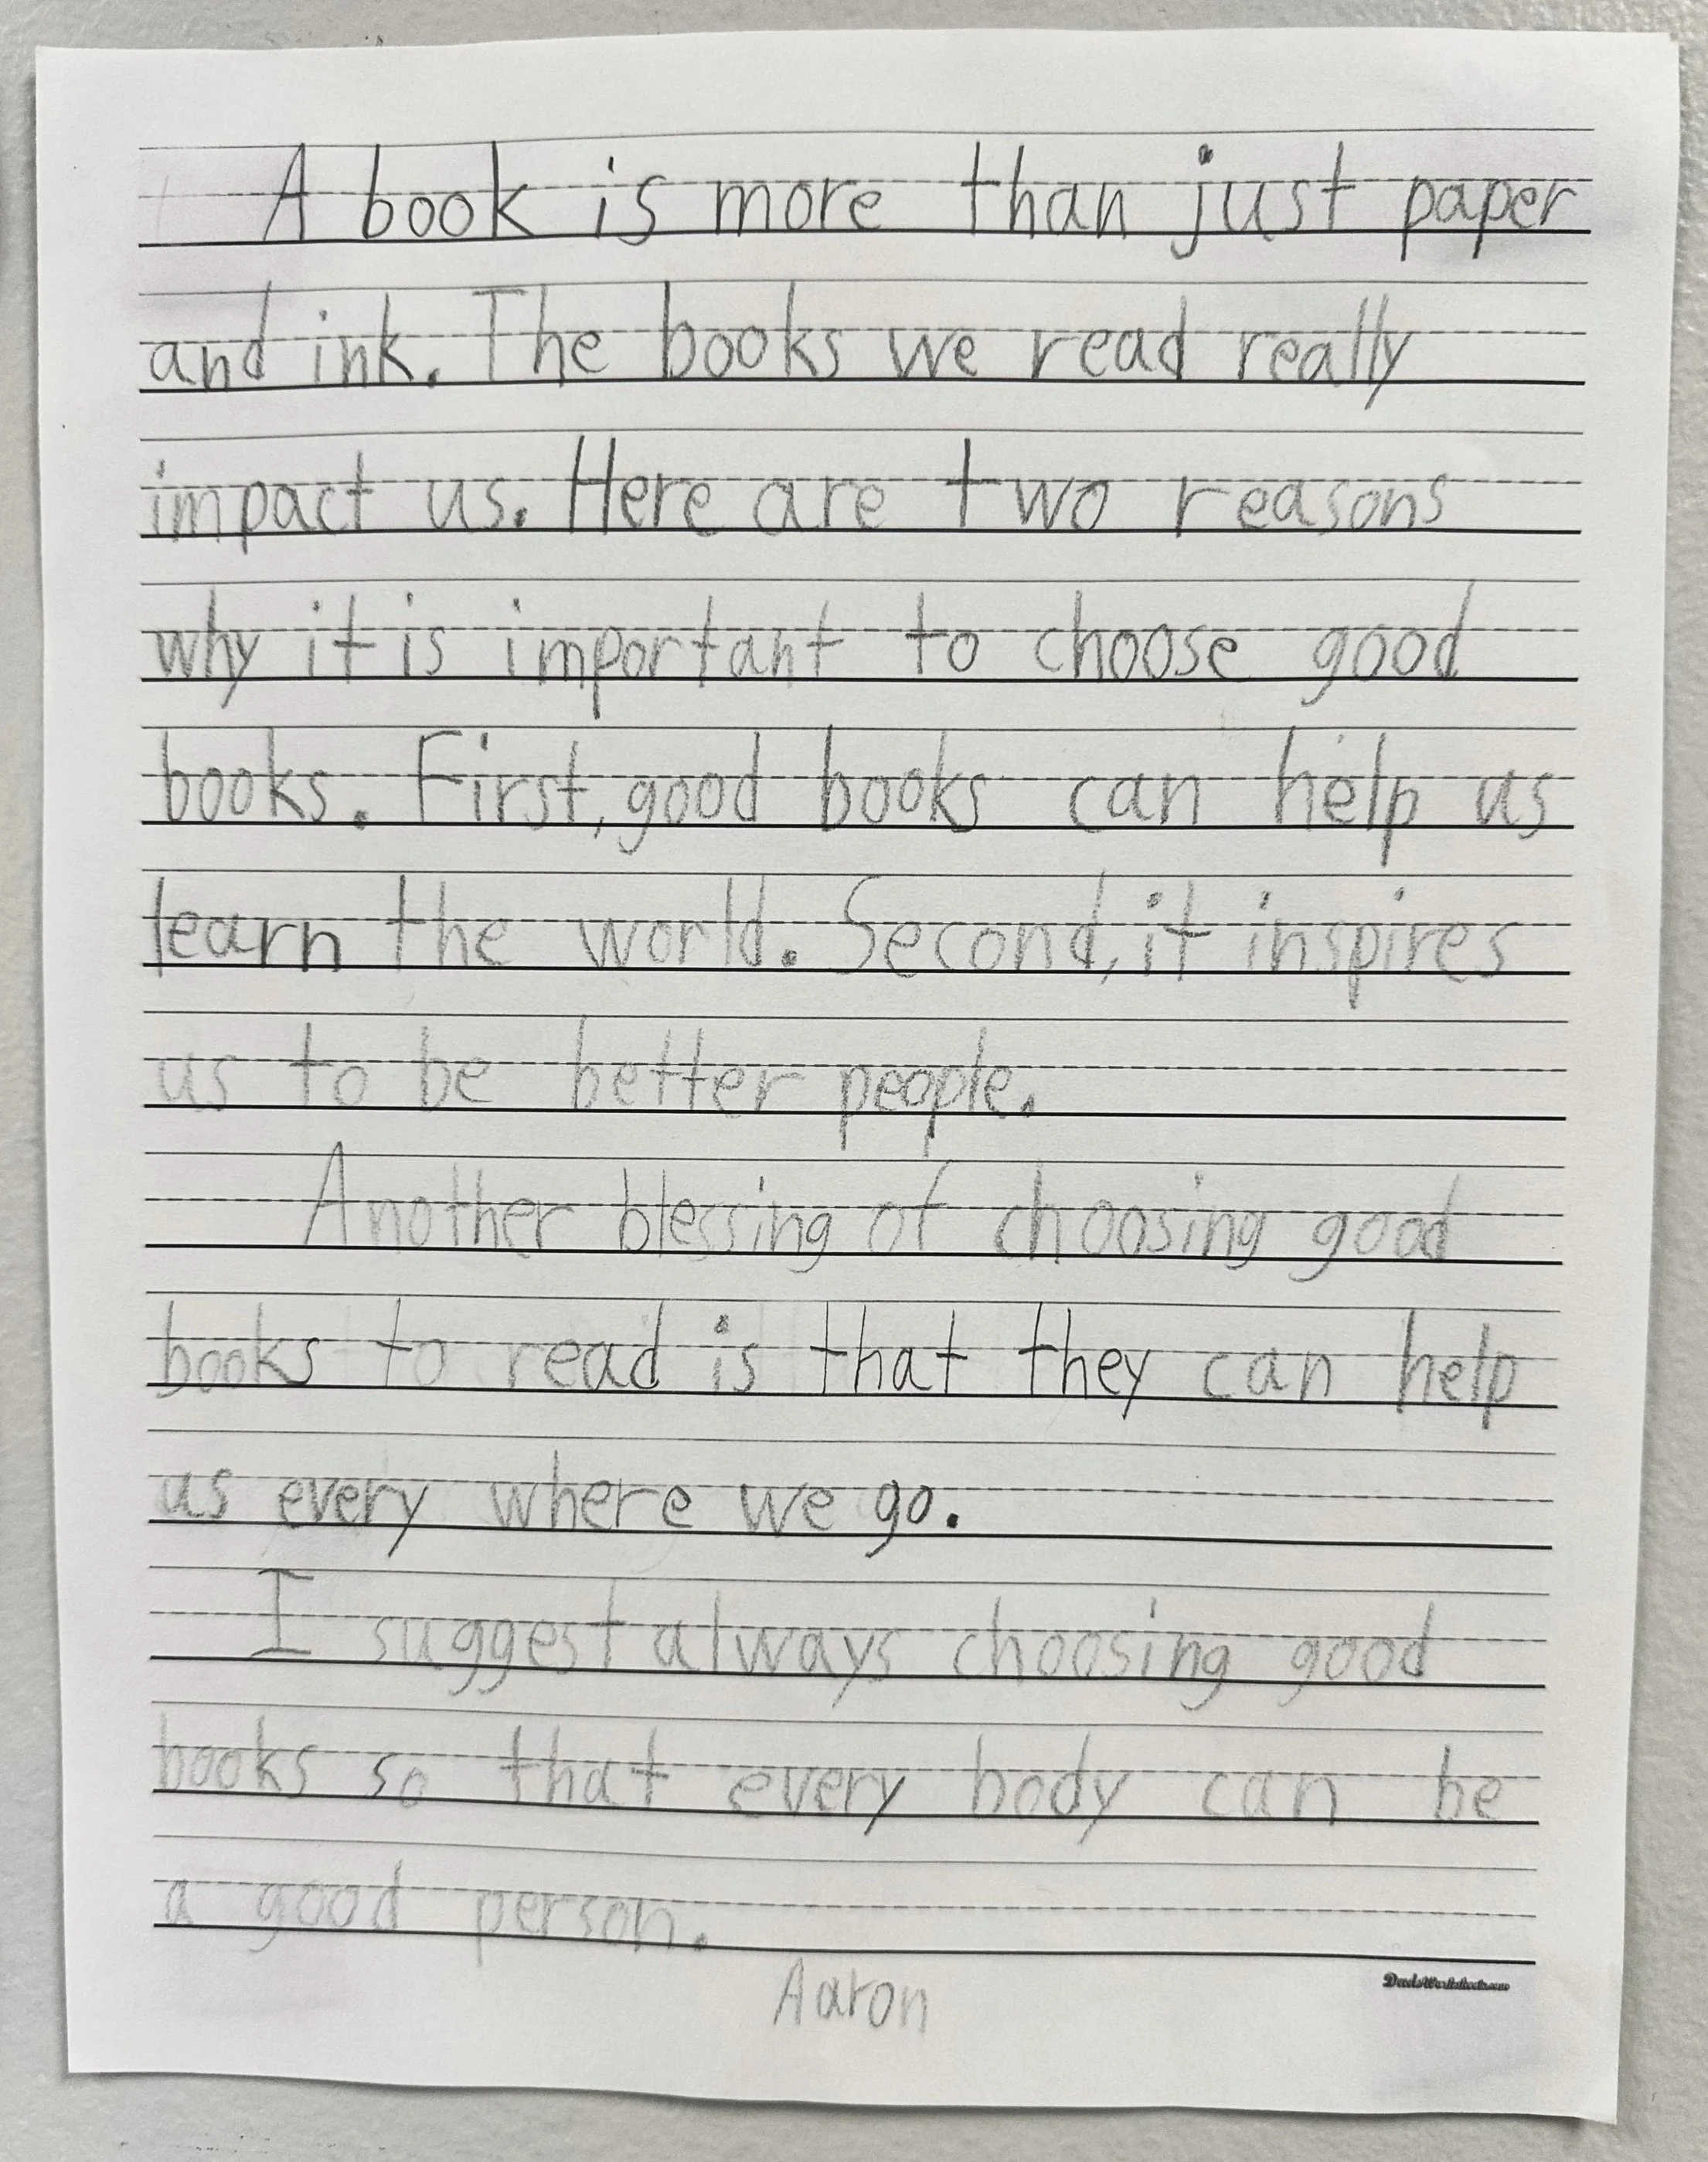 A book is more than just paper
and ink. The books we read really
impact us. Here are two reasons
why it is important to choose good
books. First, good books can help us
learn the world. Second, it inspires
us to be better people.
Another blessing of choosing good
books to read is that they can help
us every where we go.
I suggest always choosing good
books so that every body can be
a good person.
Aaron